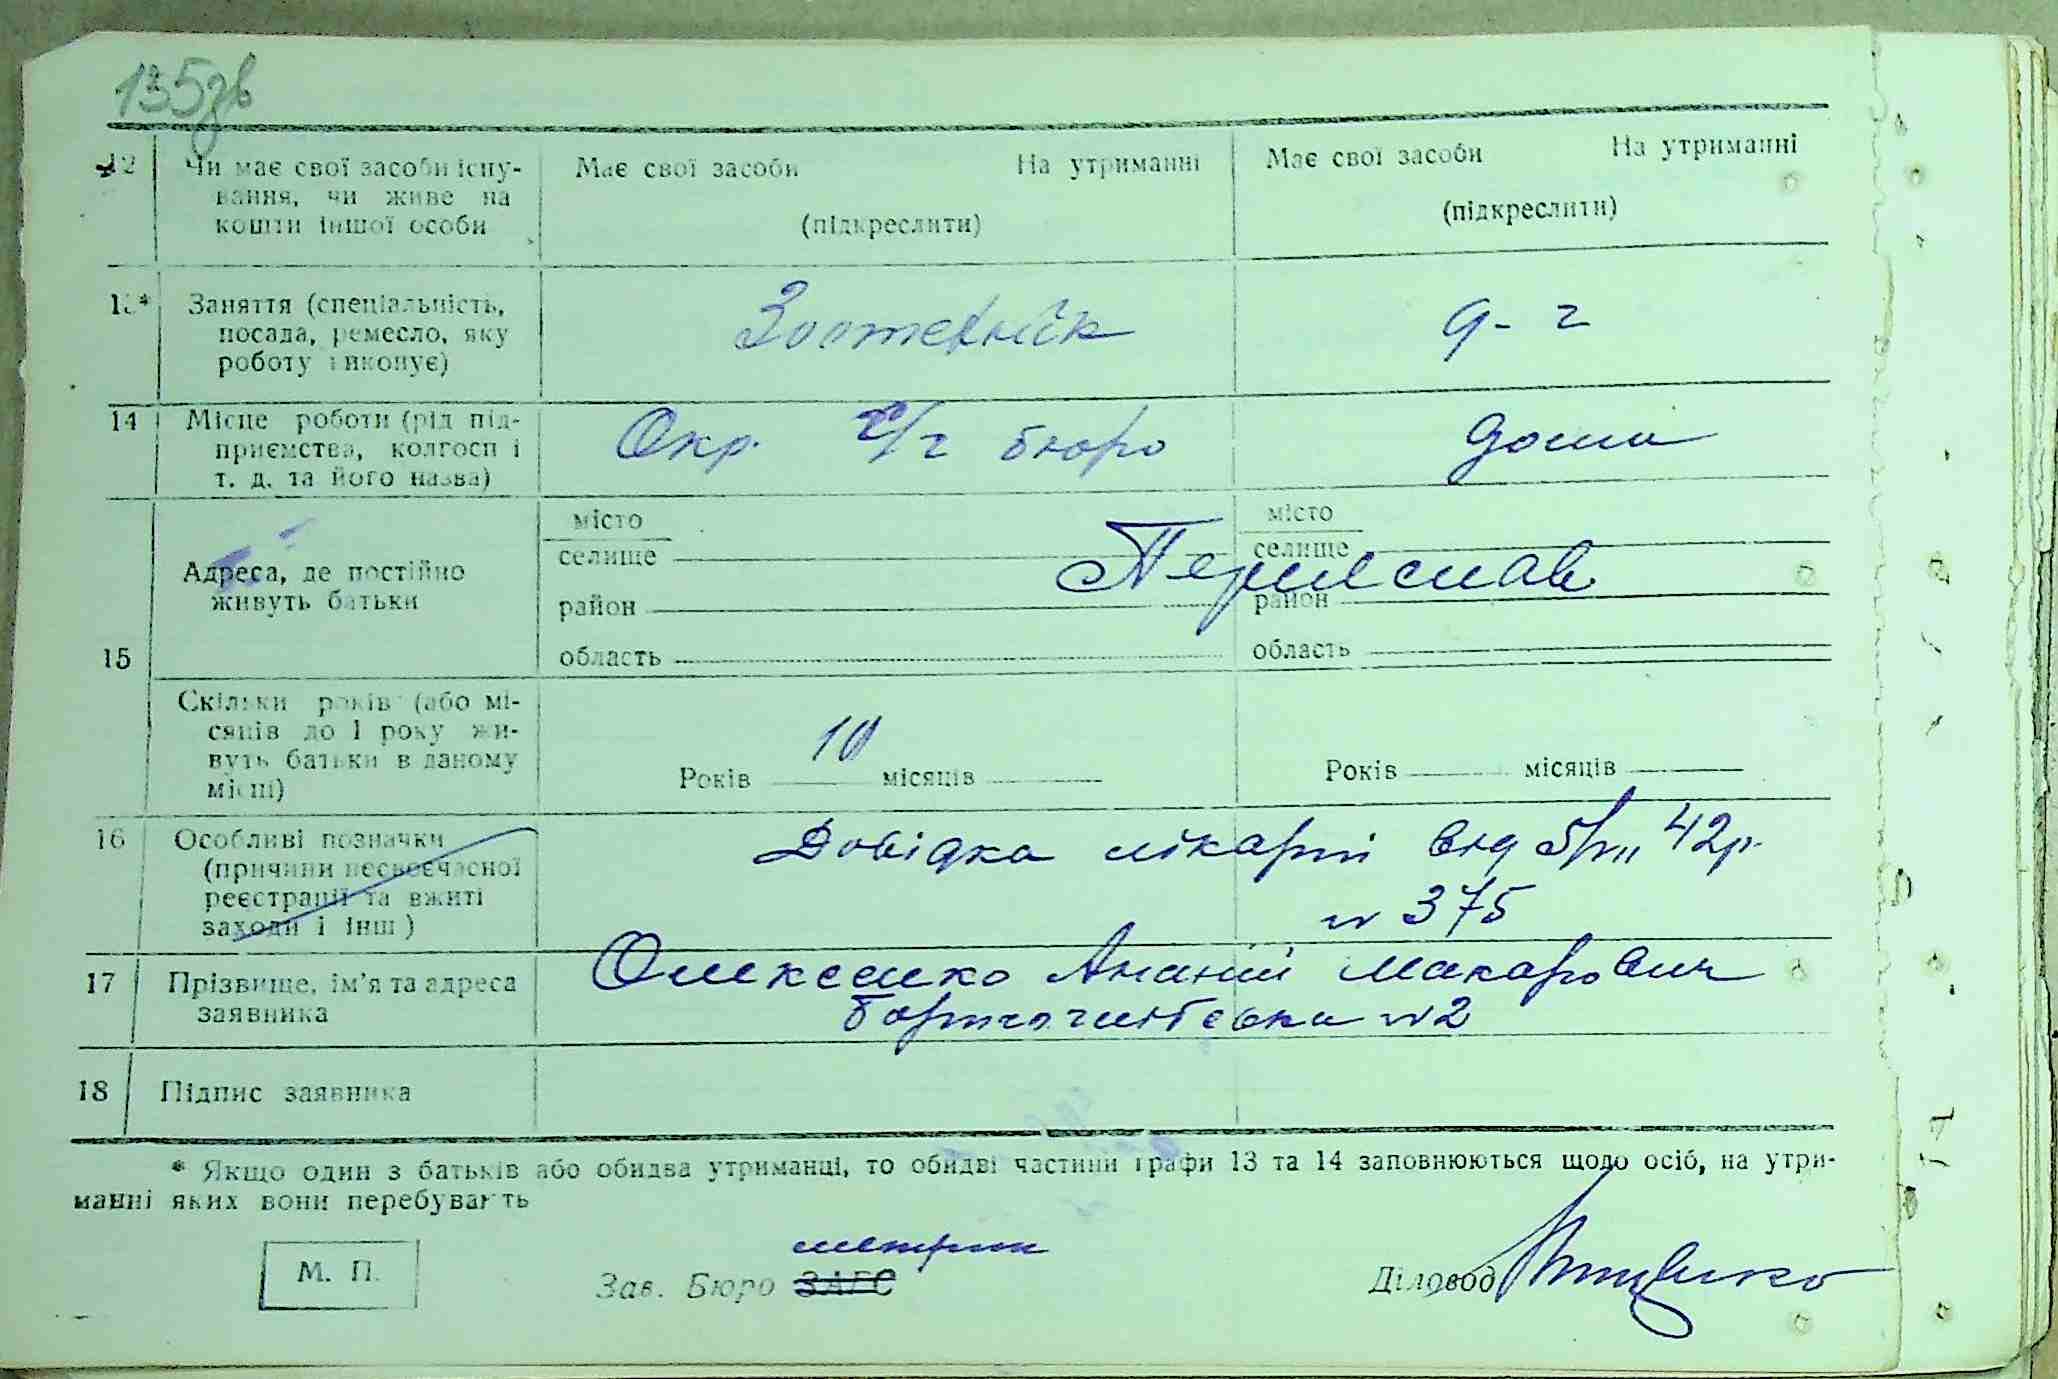 135зв
12 Чи має свої засоби існу- Має свої засоби На утриманні Має свої засоби На утриманні
вання, чи живе на
кошти іншої особи (підкреслити) (підкреслити)
13* Заняття (спеціальність, Зоотехнік д-г
посада, ремесло, яку
роботу виконує)
14 Місце роботи (рід під- Окр. с/г бюро дома
приємства, колгосп і
т. д. та його назва)
15 Адреса, де постійно
живуть батьки
місто місто
селище селище
Переяслав
район район
область область
Скільки років (або мі-
сяців до 1 року жи-
вуть батьки в даному
місці)
Років 10 місяців Років місяців
16 Особливі позначки Довідка лікарні від 42р.
(причини несвоєчасної
реєстрації та вжиті № 375
заходи і інш)
17 Прізвище, ім'я та адреса Олексенко Ананій Макарович
заявника №2
18 Підпис заявника
* Якщо один з батьків або обидва утриманці, то обидві частини графи 13 та 14 заповнюються щодо осіб, на утри-
манні яких вони перебувають
метрик
М. П. Зав. Бюро ЗАГС Діловод